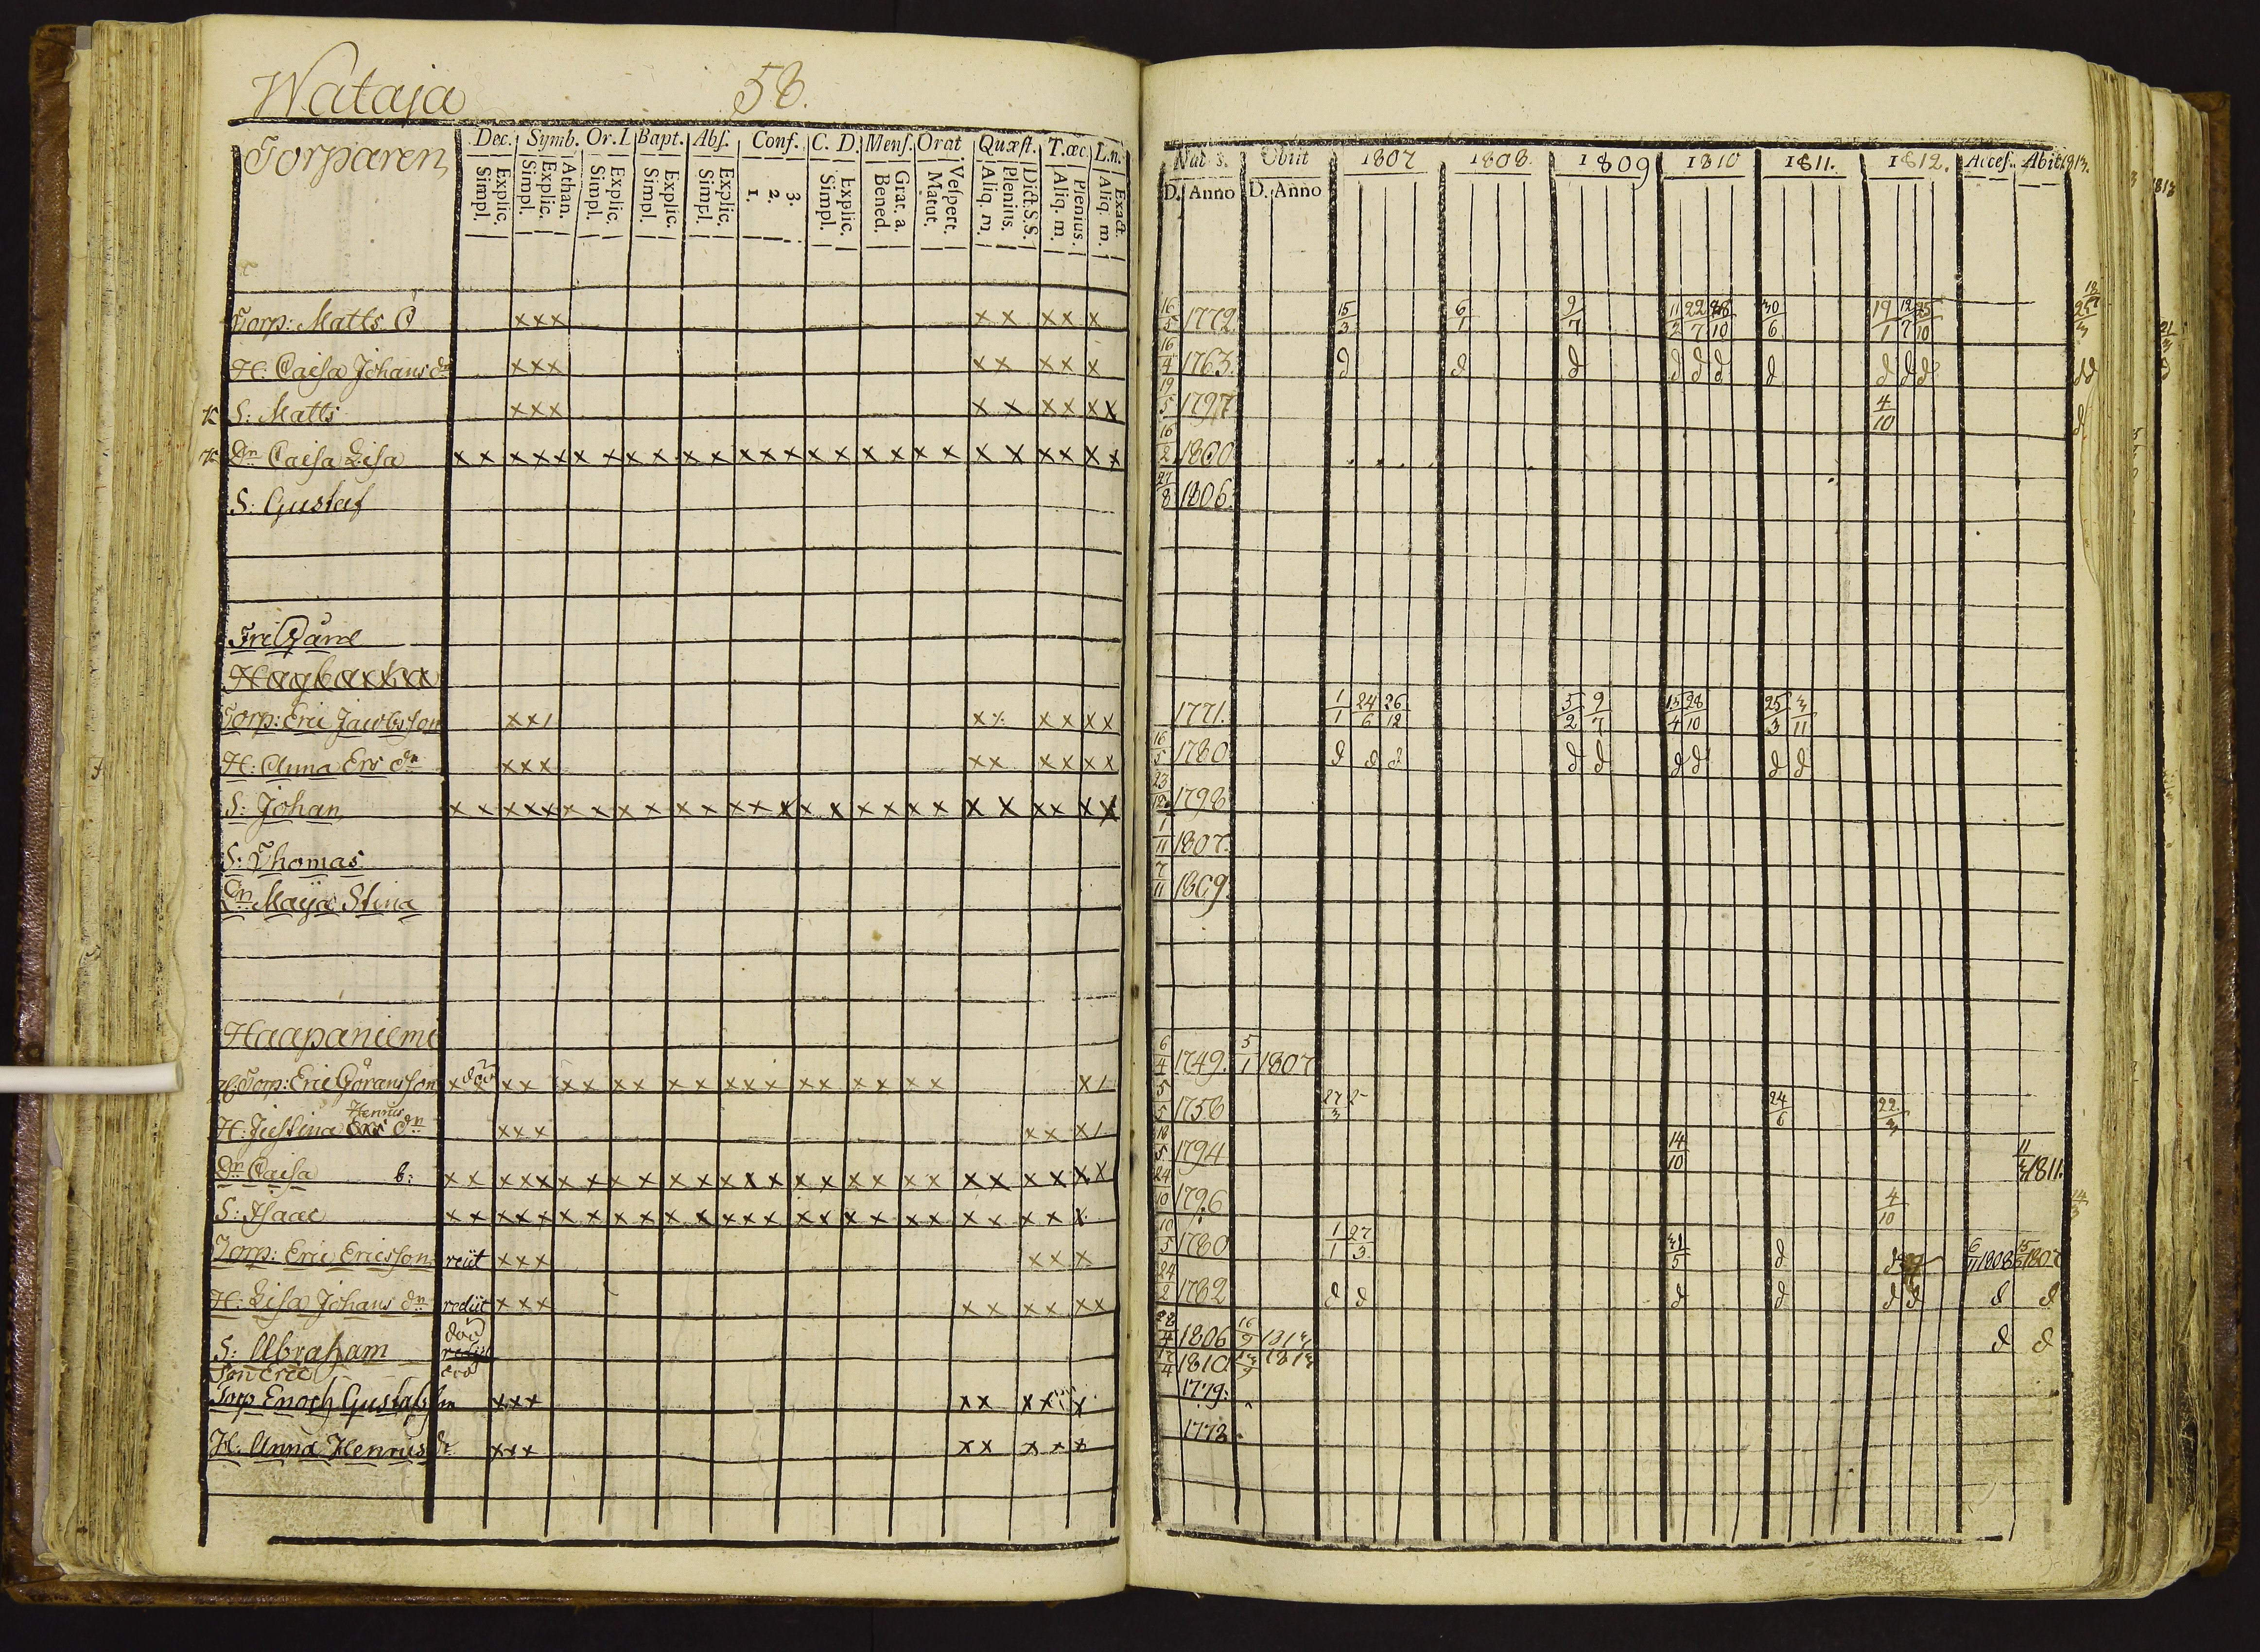 Wataja 58.
Torparen Dec. Symb. Or. L Bapt. Abs. Conf. C. D. Mens. Orat Quæst. T. œc. L. n.
Simpl. Explic. Simpl. Explic. Athan. Simpl. Explic. Simpl. Explic. Simpl. Explic. 1. 2. 3. Simpl. Explic. Bened. Grat. a. Matut. Vespert. Aliq. m. Plenius. Dict. S. S. Aliq. m. Plenius. Aliq. m. Exact.
Nat s. Obiit 1807 1808. 1809 1810 1811. 1812. Acces. Abiit 1813.
D. Anno D. Anno
Torp: Matts xxx xx xx x 16/5 1772 15/3 6/1 9/7 11/2 22/7 28/10 30/6 19/1 12/7 25/10
H: Caisa Johans dr xxx xx xx x 16/4 1763. d d d d d d d d d d
K S: Matts xxx xx xx xx 19/5 1797 4/10 d
K Dn Caisa Lisa xx xxx xx xx xx xxx xx xx xx xx xx xx 16/2 1800
S: Gustaf 27/8 1806.
Hagbacka
Torp: Eric Jacobsson xx/ x xx xx 1771. 1/1 24/6 26/12 5/2 9/7 15/4 28/10 25/3 3/11
H: Anna Ers dn xxx xx xx xx 16/5 1780 d d d d d d d d d
S: Johan xx xxx xx xx xx xxx xx xx xx xx xx xx 23/12 1798
S: Thomas 1/11 1807.
Dn Maija Stina 7/11 1809.
Haapaniemi
Torp: Eric Göransson x död xx xx xx xx xxx xx xx xx x/ 6/4 1749. 5/1 1807
H: Justina Henrics dn xxx xx x/ 5/5 1756 27/3 24/6 22/3
Dn Caisa b: xx xxx xx xx xx xxx xx xx xx xx xx xx 18/5 1794 14/10 1811.
S: Isaac xx xxx xx xx xx xxx xx xx xx xx xx x 24/10 1796 4/10
Torp: Eric Ericsson reiit xxx xx x 10/5 1780 1/1 27/3 31/5 d 6/11 1808 15/ 1807
H: Lisa Johans dn rediit xxx xx xx xx 24/2 1782 d d d d d d d d
S: Abraham död 28/4 1806 16/9 1813 d d
Son Eric död 17/4 1810 1813
Torp Enoch Gustafsson xxx xx xx x 1779.
H: Anna Henrics dr xxx xx xx x 1773.